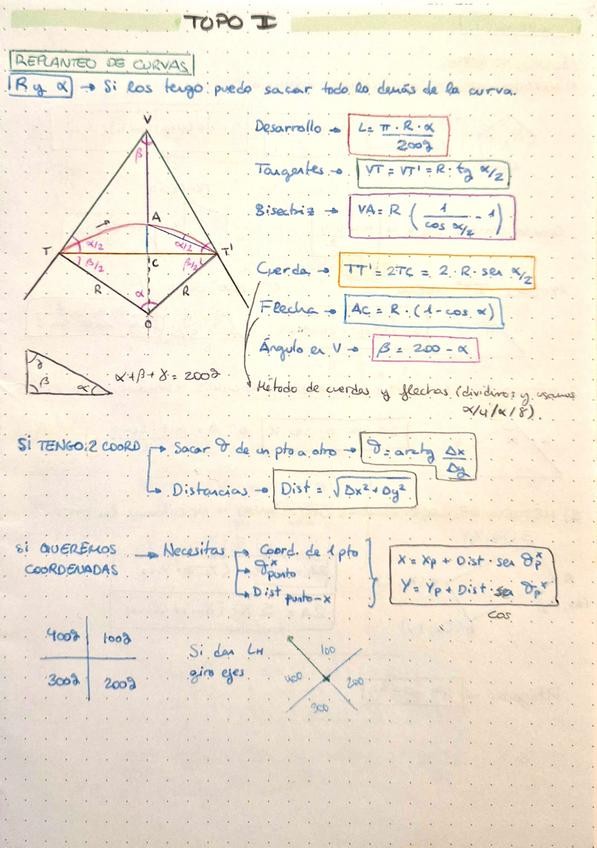 TOPO I
REPLANTEO DE CURVAS
R y α → Si los tengo: puedo sacar todo lo demás de la curva.
V
β
A
α/2
α/2
T
T'
β/2
C
β/2
R
α
R
O
Desarrollo → L = π · R · α / 200g
Tangentes → VT = VT' = R · tg α/2
Bisectriz → VA = R ( 1 / cos α/2 - 1 )
Cuerda → TT' = 2TC = 2 · R · sen α/2
Flecha → AC = R · (1 - cos α)
Ángulo en V → β = 200 - α
Método de cuerdas y flechas (dividimos y usamos
α/4 / α/8).
γ
β
α
α + β + γ = 200g
SI TENGO: 2 COORD → Sacar θ de un pto a otro → θ = arctg Δx / Δy
→ Distancias → Dist = √Δx² + Δy²
SI QUEREMOS COORDENADAS → Necesitas → Coord. de 1 pto
→ θ punto x
→ Dist punto-x
X = Xp + Dist · sen θp x
Y = Yp + Dist · θp x
cos
400g 100g
300g 200g
Si dan LH
giro ejes.
100
400
200
300